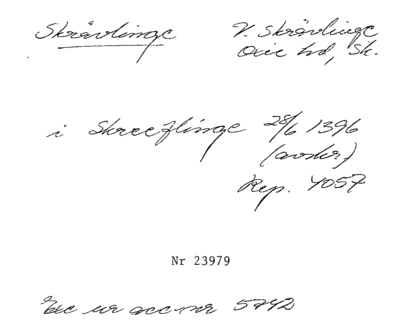 Skrävlinge V. Skrävlinge
Oxie hd, Sk.
i Skreeflinge 28/6 1396
(avskr.)
Rep. 4057
Nr 23979
Exc ur acc nr 5742